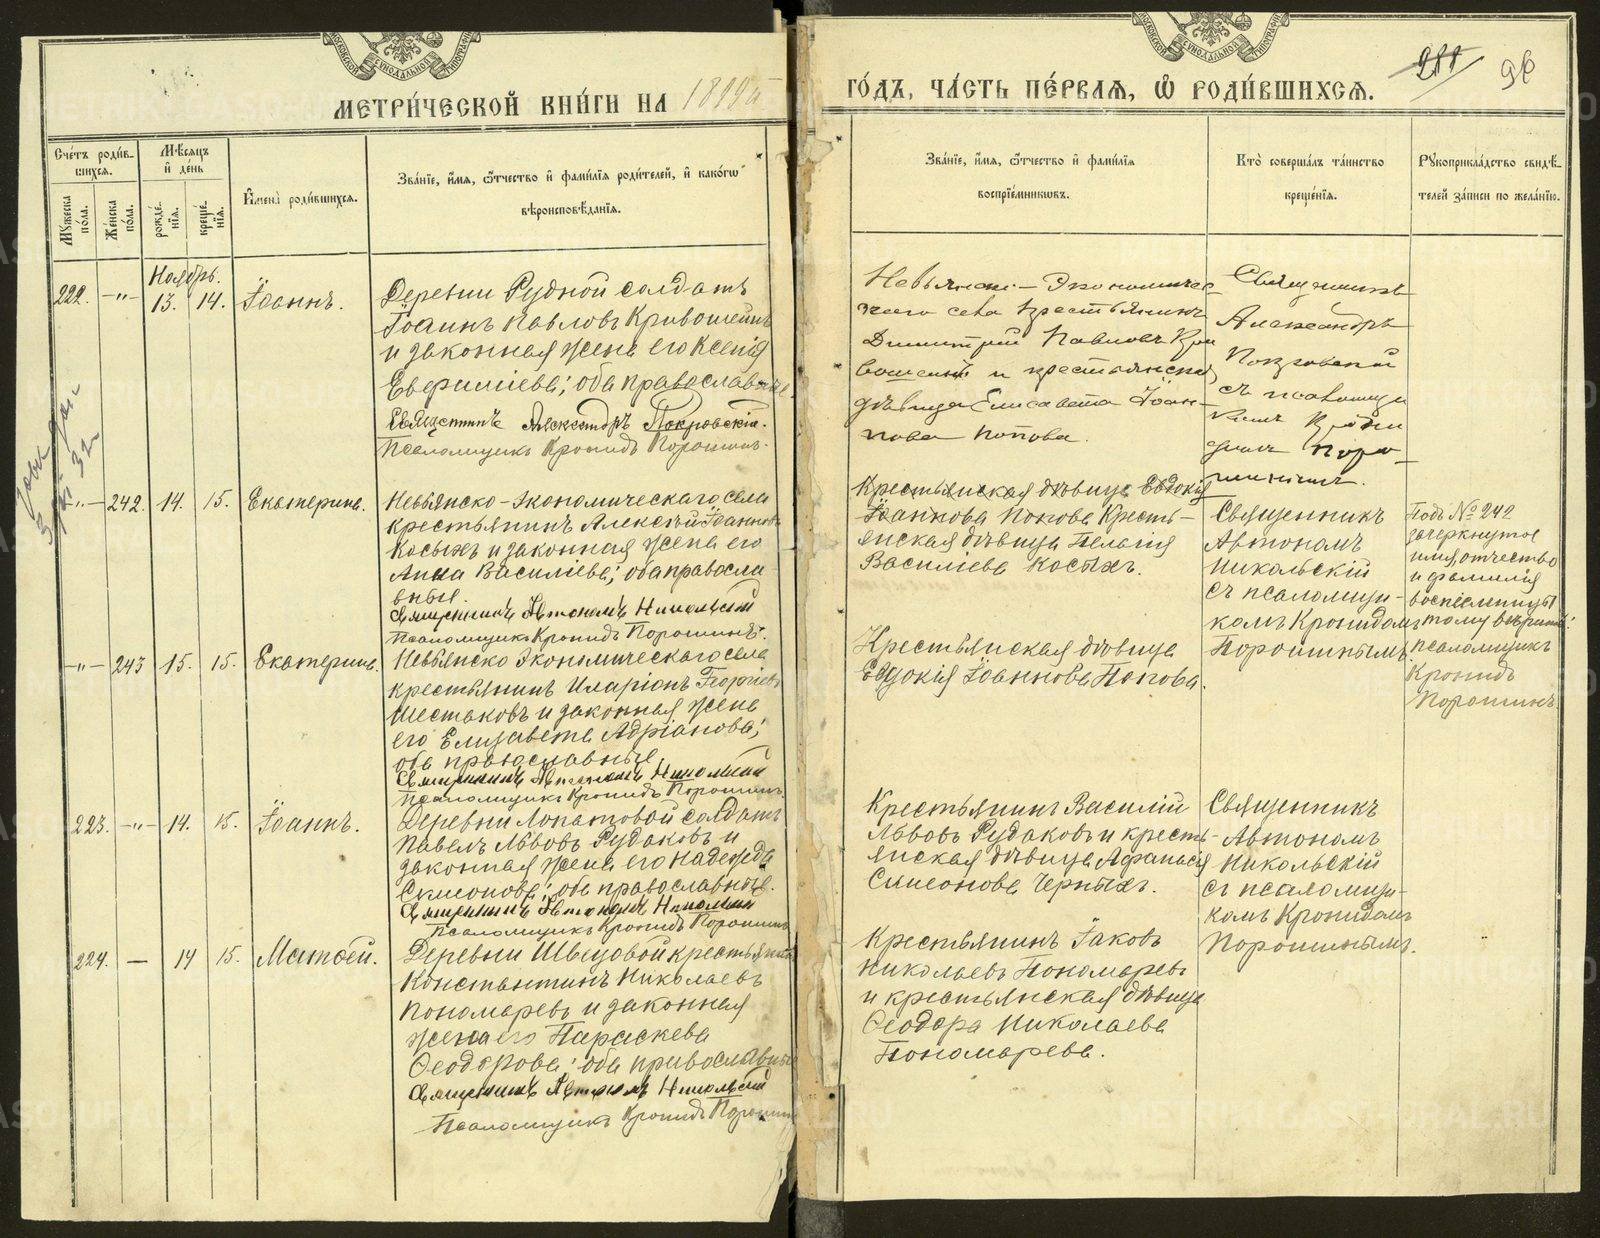 МЕТРИ́ЧЕСКОЙ КНИ́ГИ НА 1899й
ГО́ДЪ, ЧА́СТЬ ПЕ́РВАѦ, Ѿ РОДИ́ВШИХСѦ.
96
Сче́тъ роди́в-
шихсѧ.
Мꙋ́жеска
по́ла.
Же́нска
по́ла.
Мѣ́сѧцъ
и҆ де́нь
рожде́-
нїѧ.
креще́-
нїѧ.
И҆мена̀ роди́вшихсѧ.
Зва́нїе, и҆́мѧ, ѻ҆́тчество и҆ фами́лїѧ роди́телей, и҆ како́гѡ
вѣроисповѣ́данїѧ.
Зва́нїе, и҆́мѧ, ѻ҆́тчество и҆ фами́лїѧ
воспрїе́мниковъ.
Кто̀ соверша́лъ та́инство
креще́нїѧ.
Рꙋкоприкла́дство свидѣ́-
телей за́писи по жела́нїю.
Ноябрь.
222. -"- 13. 14. Іоаннъ.
Деревни Рудной солдатъ
Іоаннъ Павловъ Кривошеинъ
и законная жена его Ксенія
Евфиміева; оба православные.
Священникъ Александръ Покровскій.
Псаломщикъ Кронидъ Порошинъ.
Невьянско-Экономичес-
каго села крестьянинъ
Димитрій Павловъ Кри
вошеинъ и крестьянская
дѣвица Елисавета Іоан-
нова Попова.
Священникъ
Александръ
Покровскій
съ псаломщи
комъ Крони
домъ Поро-
шинымъ.
-"- 242. 14. 15. Екатерина.
Невьянско-Экономическаго села
крестьянинъ Алексѣй Іоанновъ
Косыхъ и законная жена его
Анна Василіева; оба правосла-
вные.
Священникъ Автономъ Никольскій
Псаломщикъ Кронидъ Порошинъ.
Крестьянская дѣвица Евдокія
Іоаннова Попова Кресть-
янская дѣвица Пелагія
Василіева Косыхъ.
Священникъ
Автономъ
Никольскій
съ псаломщи-
комъ Кронидомъ
Порошинымъ.
Подъ № 242
зачеркнутое
имя, отчество
и фамилія
воспріемницы
тому вѣрить:
псаломщикъ
Кронидъ
Порошинъ.
-"- 243 15. 15. Екатерина.
Невьянско Экономическаго села
крестьянинъ Иларіонъ Георгіевъ
Шестаковъ и законная жена
его Елизавета Адріанова;
оба православные
Священникъ Автономъ Никольскій
Псаломщикъ Кронидъ Порошинъ.
Крестьянская дѣвица
Евдокія Іоаннова Попова.
223. -"- 14. 15. Іоаннъ.
Деревни Лопатковой солдатъ
Павелъ Львовъ Рудаковъ и
законная жена его Надежда
Симеонова; оба православные.
Священникъ Автономъ Никольскій
Псаломщикъ Кронидъ Порошинъ
Крестьянинъ Василій
Львовъ Рудаковъ и кресть-
янская дѣвица Афанасія
Симеонова Черныхъ.
Священникъ
Автономъ
Никольскій
съ псаломщи-
комъ Кронидомъ
Порошинымъ.
224. — 14 15. Матвей.
Деревни Швецовой крестьянинъ
Константинъ Николаевъ
Пономаревъ и законная
жена его Параскева
Ѳеодорова; оба православные
Священникъ Автономъ Никольскій
Псаломщикъ Кронидъ Порошинъ
Крестьянинъ Іаковъ
Николаевъ Пономаревъ
и крестьянская дѣвица
Ѳеодора Николаева
Пономарева.